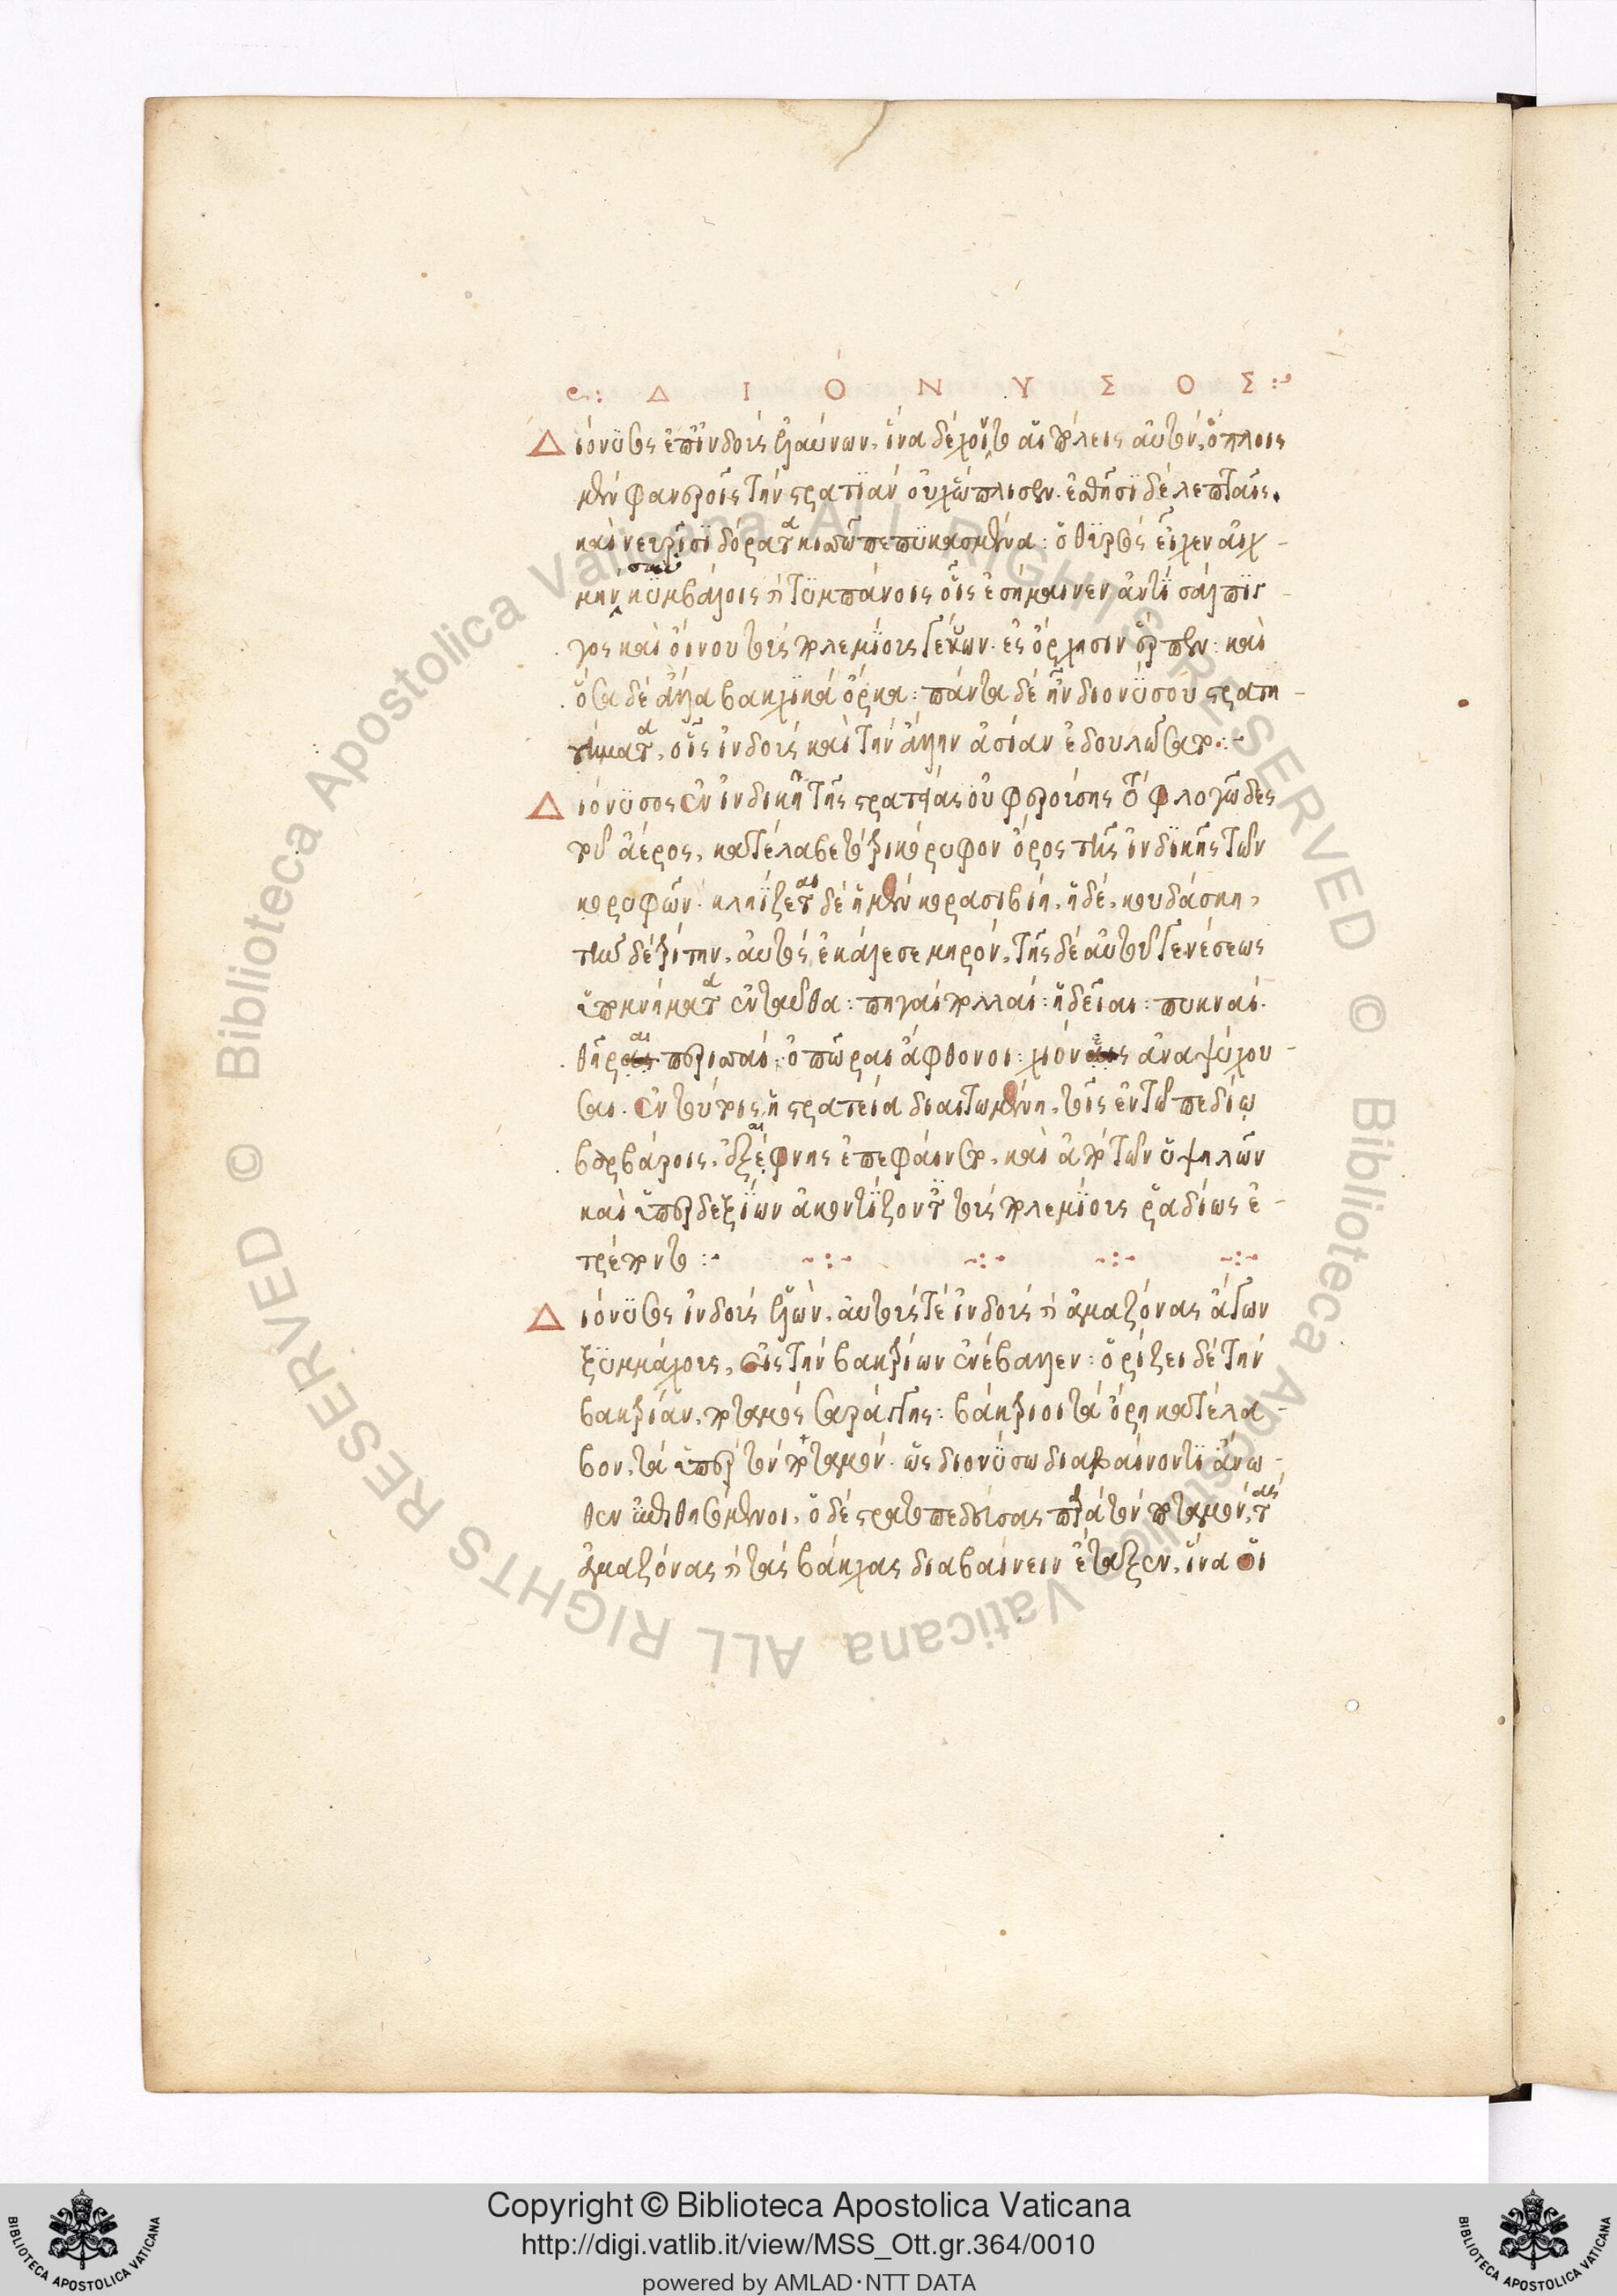 ς: Δ Ι Ό Ν Υ Σ Ο Σ :
Διόνυσος ἐπ ἰνδοὺς ἐλαύνων, ἵνα δέχοιντο αἱ πόλεις αὐτὸν, ὅπλοις
μὲν φανεροῖς τὴν στρατιὰν οὐχ ὥπλισεν. ἐσθῆσι δὲ λεπταῖς.
καὶ νεβρίσι δόρατα κισσῷ πεπυκασμένα: ὁ θύρσος εἶχεν αἰχ-
μὴν, κυμβάλοις καὶ τυμπάνοις οἷς ἐσήμαινεν ἀντὶ σάλπιγ-
γος καὶ οἴνου τοὺς πολεμίους γεύων. ἐς ὄρχησιν ἔτρεπεν: καὶ
ὅσα δὲ ἄλλα βακχικὰ ὄργια: πάντα δὲ ἦν διονύσου στρατη-
γήματα, οἷς ἰνδοὺς καὶ τὴν ἄλλην ἀσίαν ἐδουλώσατο:
Διόνυσος ἐν ἰνδικῇ τῆς στρατιᾶς οὐ φερούσης τὸ φλογῶδες
τοῦ ἀέρος, κατέλαβε τρικόρυφον ὄρος τῆς ἰνδικῆς τῶν
κορυφῶν. κληίζεται δὲ ἡ μὲν κορασιβίη, ἡ δὲ, κονδάσκη,
τὴν δὲ τρίτην, αὐτὸς ἐκάλεσε μηρόν, τῆς δὲ αὐτοῦ γενέσεως
ὑπομνήματα ἐνταῦθα: πηγαὶ πολλαὶ: ἡδεῖαι: πυκναί.
θῆραι περισσαί: ὀπῶραι ἄφθονοι: χιόνες ἀναψύχου-
σαι. ἐν τούτοις ἡ στρατεία διαιτωμένη, τοῖς ἐν τῷ πεδίῳ
βαρβάροις, ἐξαίφνης ἐπεφαίνετο, καὶ ἀπὸ τῶν ὑψηλῶν
καὶ ὑπερδεξίων ἀκοντίζοντες τοὺς πολεμίους ῥαδίως ἐ-
τρέποντο:
Διόνυσος ἰνδοὺς ἑλὼν, αὐτούς τε ἰνδοὺς καὶ ἀμαζόνας ἄγων
ξυμμάχους, εἰς τὴν βακτρίων ἐνέβαλλεν: ὁρίζει δὲ τὴν
βακτρίαν, ποταμὸς σαράγγης: βάκτριοι τὰ ὄρη κατέλα-
βον, τὰ ὑπὲρ τὸν ποταμόν. ὡς διονύσω διαβαίνοντι ἄνω-
θεν ἐπιθησόμενοι, ὁ δὲ στρατοπεδεύσας παρὰ τὸν ποταμόν, τὰς
ἀμαζόνας καὶ τὰς βάκχας διαβαίνειν ἔταξεν, ἵνα οἱ
Copyright © Biblioteca Apostolica Vaticana
http://digi.vatlib.it/view/MSS_Ott.gr.364/0010
powered by AMLAD·NTT DATA